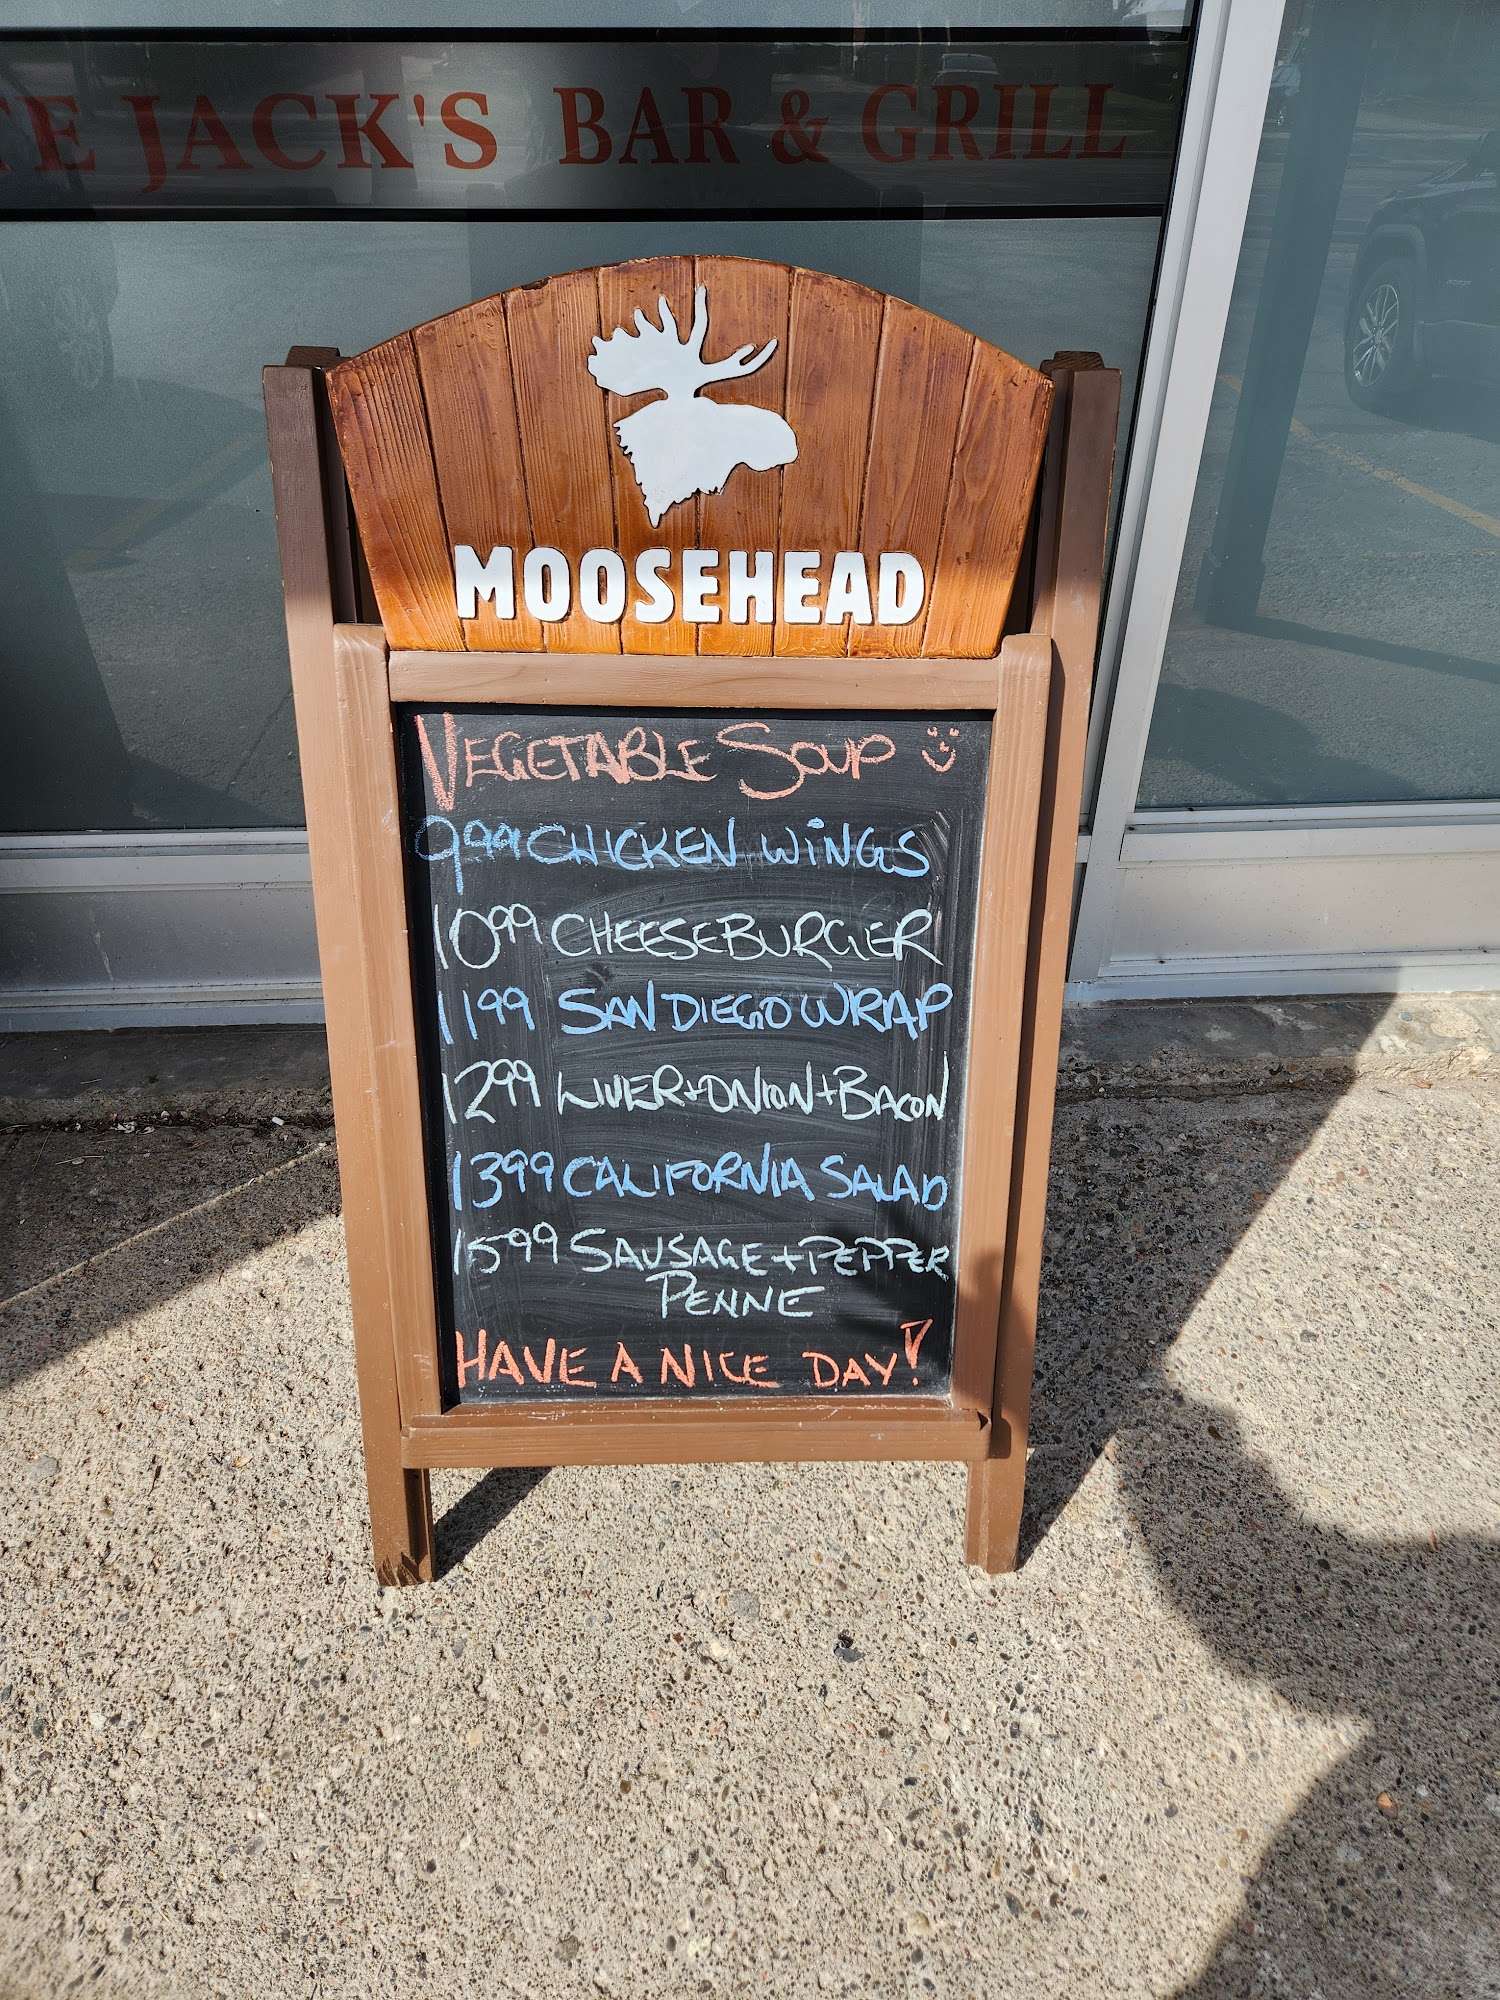 JACK'S BAR & GRILL
MOOSEHEAD
VEGETABLE SOUP
9.99 CHICKEN WiNGS
10.99 CHEESEBURGER
11.99 SAN DIEGO WRAP
12.99 LIVER+ONION+BACON
13.99 CALIFORNIA SALAD
15.99 SAUSAGE+PEPPER
PENNE
HAVE A NICE DAY!